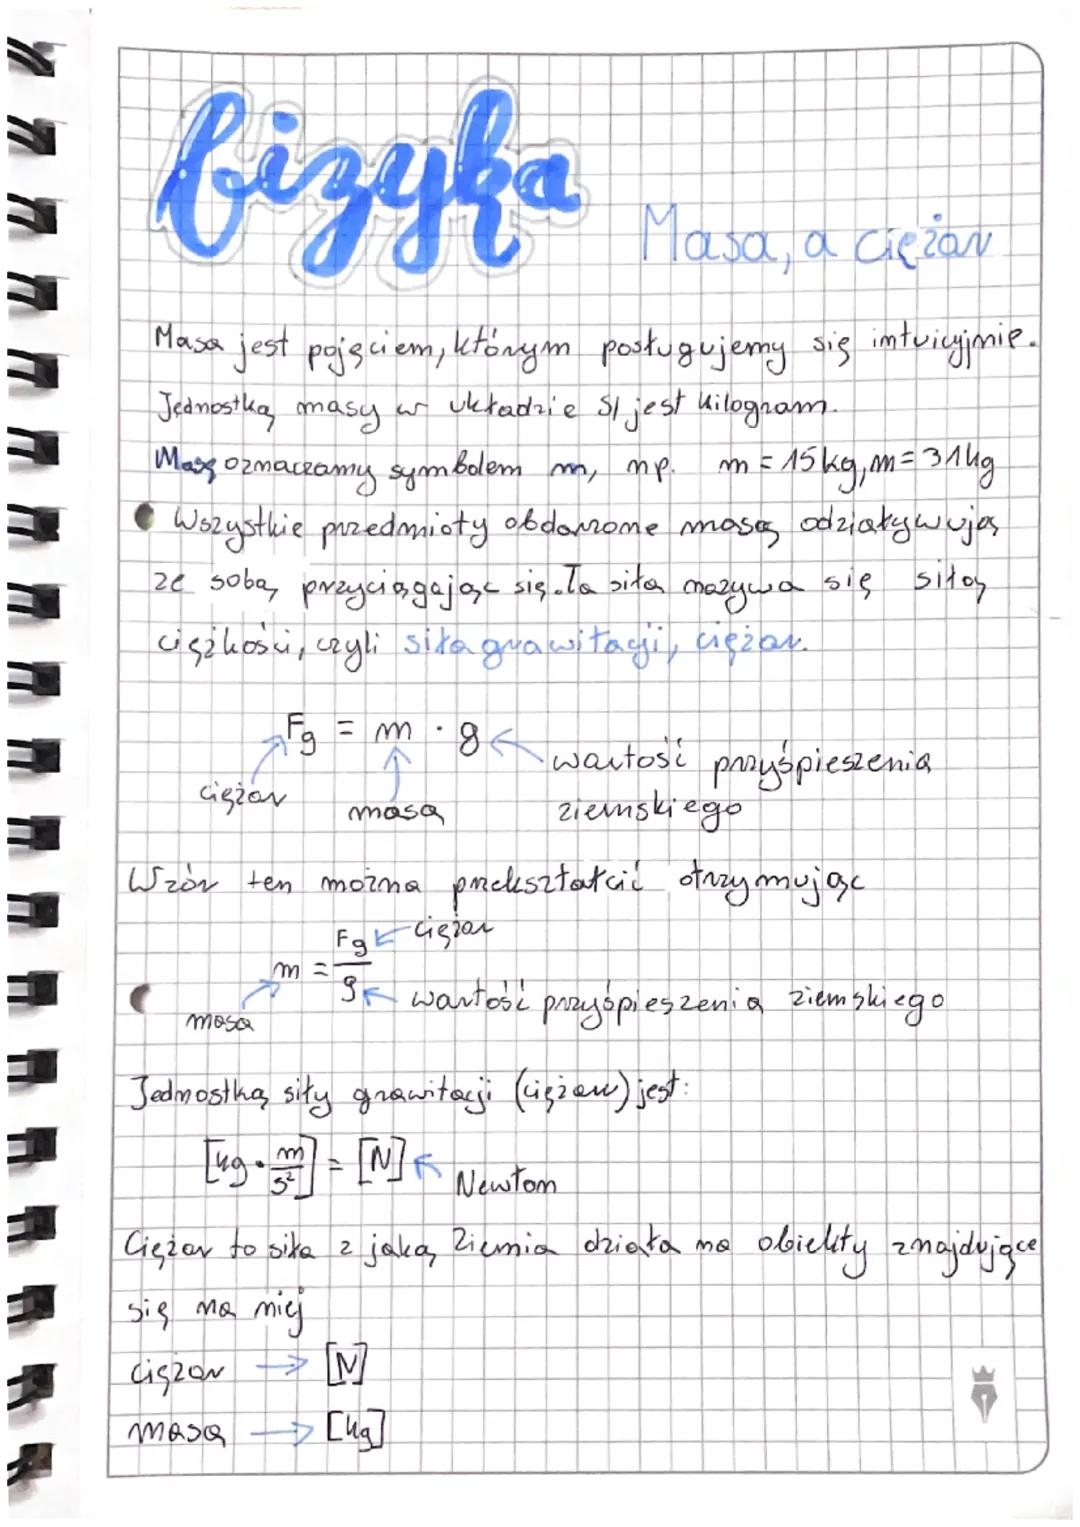 fizyka
Masa, a ciężar
Masa jest pojęciem, którym posługujemy się intuicyjnie.
Jednostką masy w układzie SI jest kilogram.
Masę oznaczamy symbolem m, np. m = 15 kg, m = 31 kg
Wszystkie przedmioty obdarzone masą odziaływują
ze sobą przyciągając się. Ta siła nazywa się siłą
ciężkości, czyli siła grawitacji, ciężar.
Fg = m · g
wartość przyśpieszenia
ciężar masa ziemskiego
Wzór ten można przekształcić otrzymując
m = Fg/g
ciężar
masa
wartość przyśpieszenia ziemskiego
Jednostką siły grawitacji (ciężaru) jest:
[kg · m/s²] = [N]
Newton
Ciężar to siła z jaką Ziemia działa na obiekty znajdujące
się na niej
ciężar → [N]
masa → [kg]